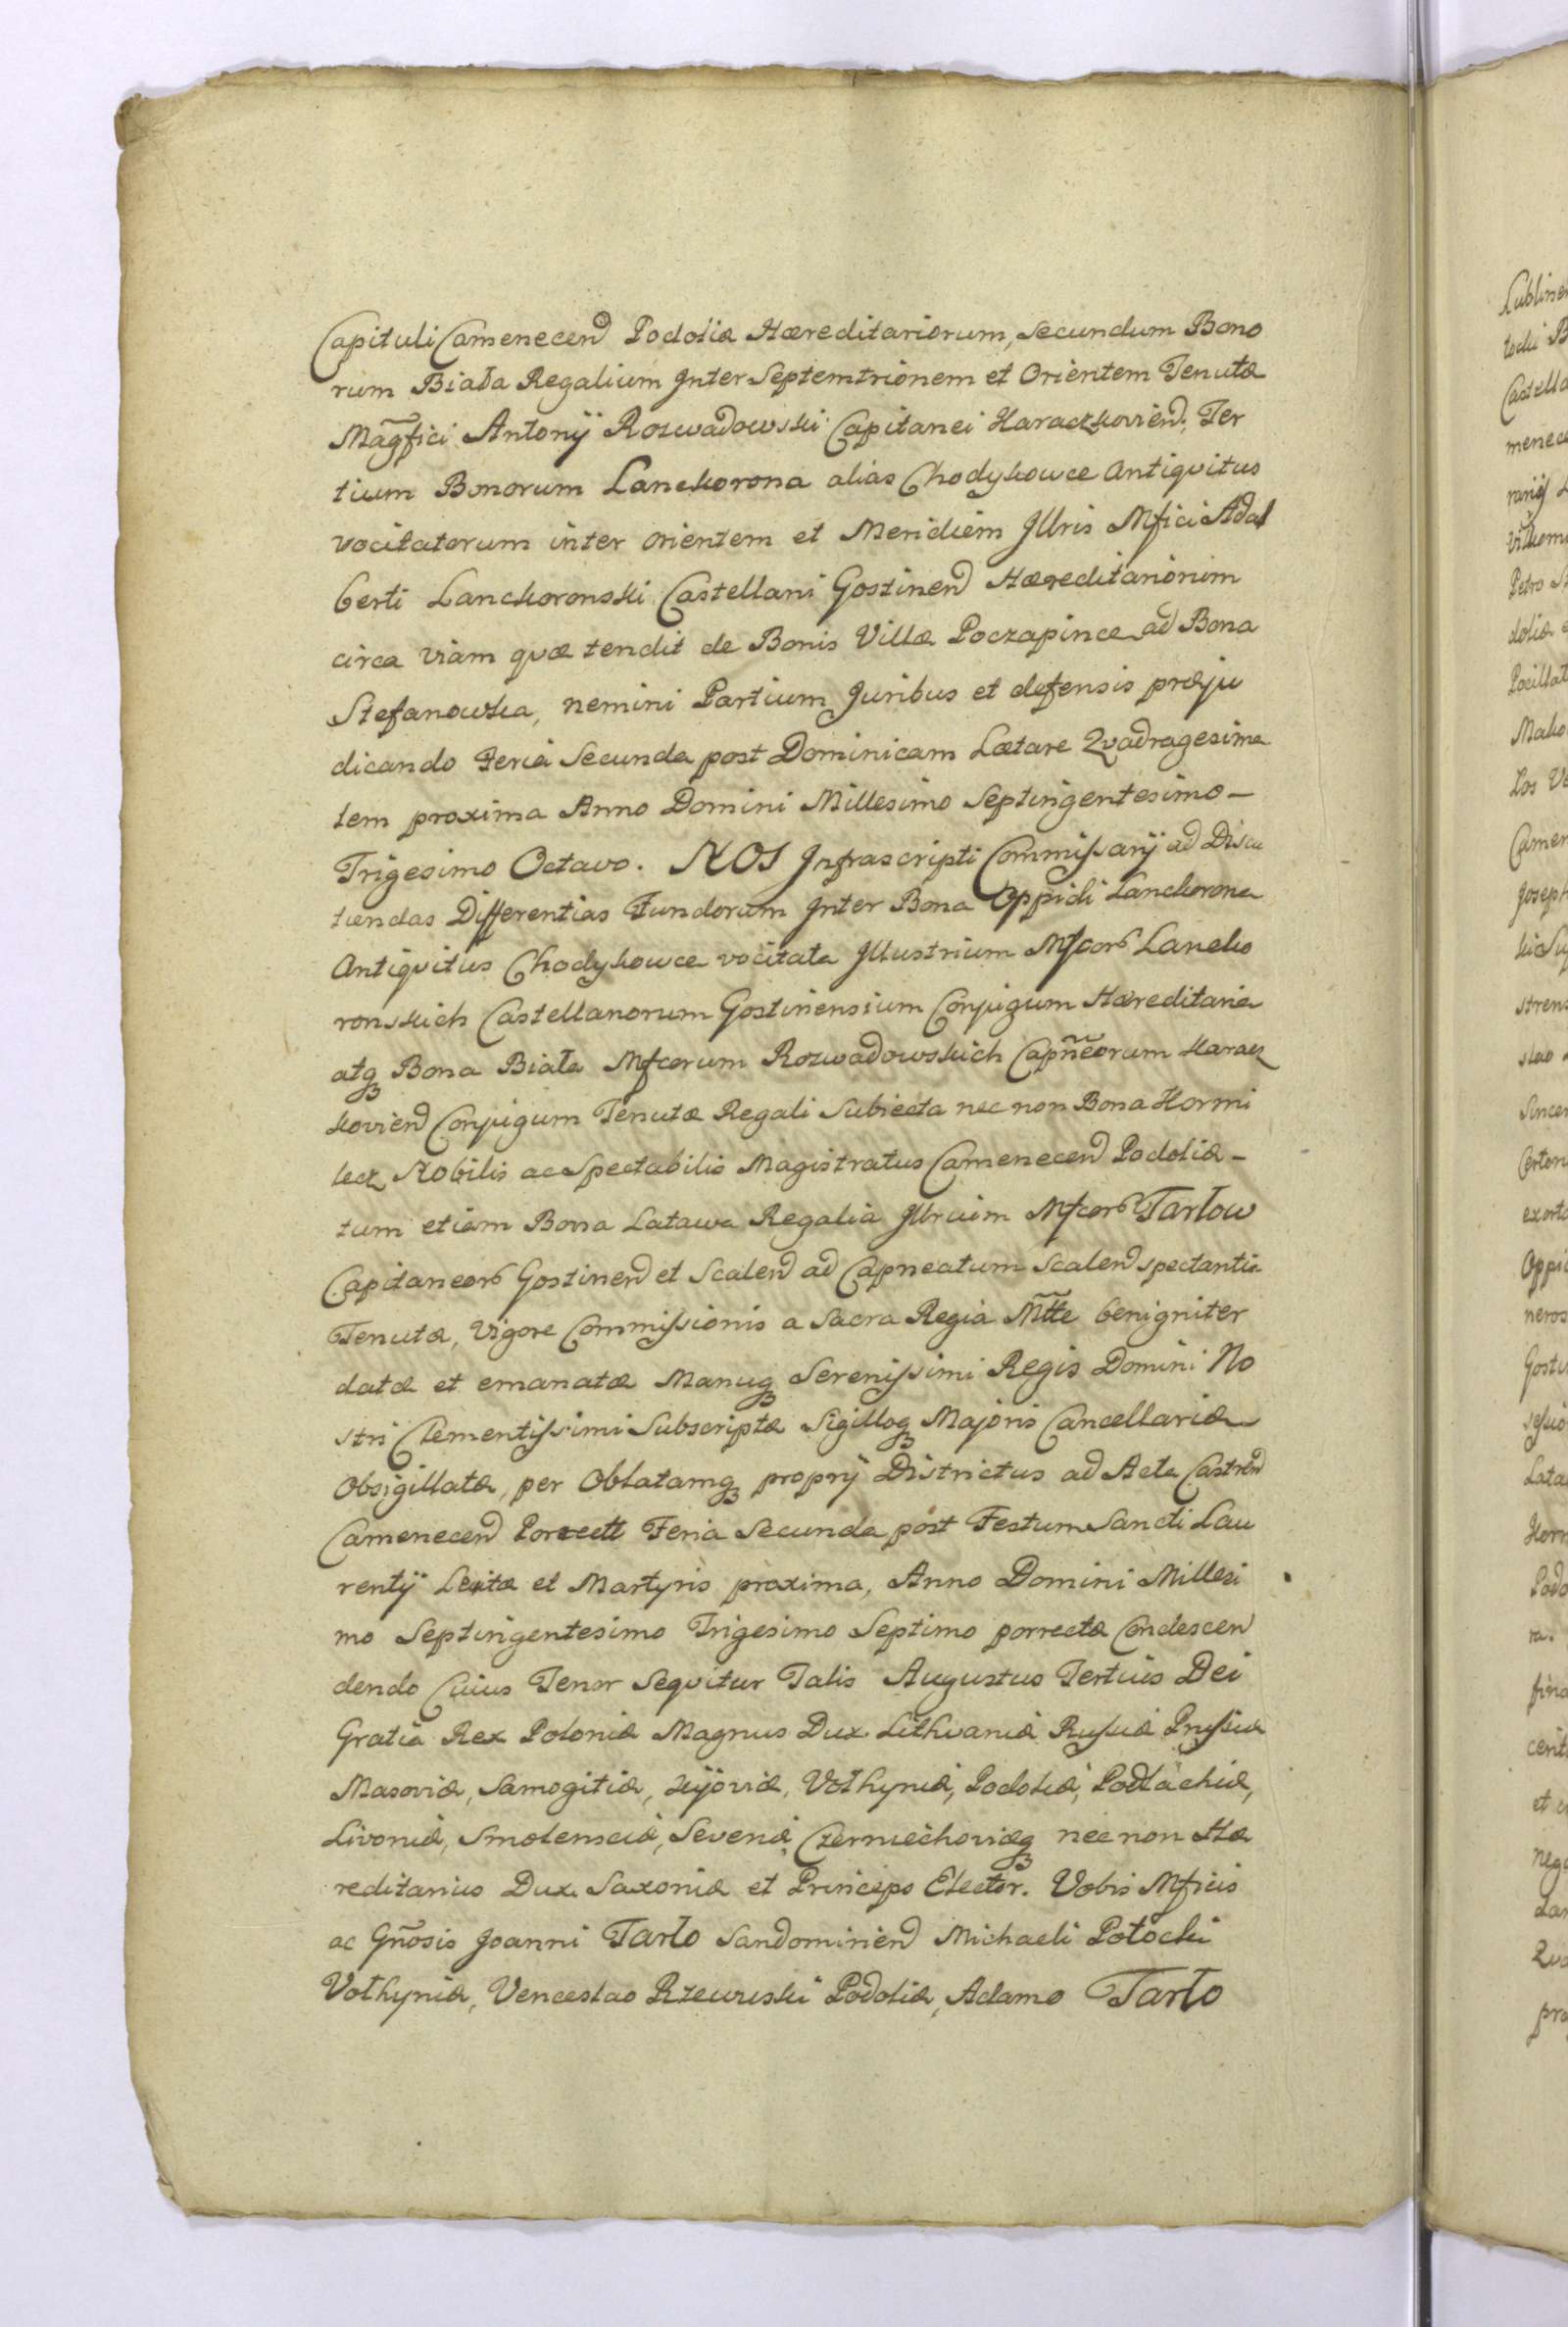 Capituli Camenecen Podoliæ Hæreditariorum, secundum Bono
rum Biała Regalium Inter Septemtrionem et Orientem Tenutæ
Magfici Antonij Rozwadowski Capitanei Haraczkovien. Ter
tium Bonorum Lanckorona alias Chodykowce Antiqvitus
vocitatorum inter orientem et Meridiem Jllris Mfici Adal
berti Lanckoronski Castellani Gostinen Hæreditariorum
circa viam qvæ tendit de Bonis Villæ Poczapince ad Bona
Stefanowka, nemini Partium Juribus et defensis præju
dicando Feria Secunda post Dominicam Lætare Qvadragesima
lem proxima Anno Domini Millesimo Septingentesimo –
Trigesimo Octavo. NOS Infrascripti Commissarij ad Discu
tiendas Differentias Fundorum Inter Bona Oppidi Lanckorona
Antiqvitus Chodykowce vocitata Jllustrium Mfcor Lancko
ronskich Castellanorum Gostinensium Conjugum Hæreditaria
atq Bona Biała Mfcorum Rozwadowskich Capneorum Haracz
kovien Conjugum Tenutæ Regali Subiecta nec non Bona Hormi
lecz Nobilis ac Spectabilis Magistratus Camenecen Podoliæ –
tum etiam Bona Latawa Regalia Jllrium Mfcor Tarłow
Capitaneor Gostinen et Scalen ad Capneatum Scalen spectantia
Tenutæ, Vigore Commissionis a Sacra Regia Mtte benigniter
datæ et emanatæ Manuq Serenissimi Regis Domini No
stri Clementissimi Subscriptæ Sigilloq Majoris Cancellariæ
Obsigillatæ, per Oblatamq proprij Districtus ad Acta Castren
Camenecen Feria Secunda post Festum Sancti Lau
rentij Levitæ et Martyris proxima, Anno Domini Millesi
mo Septingentesimo Trigesimo Septimo porrectæ Condescen
dendo Cuius Tenor Seqvitur Talis Augustus Tertius Dei
Gratia Rex Poloniæ Magnus Dux Lithvaniæ Russiæ Prussiæ
Masoviæ, Samogitiæ, Kijoviæ, Volhyniæ, Podoliæ, Podlachiæ,
Livoniæ, Smolensciæ, Severiæ, Czerniechoviæq nec non Hæ
reditarius Dux Saxoniæ et Princeps Elector. Vobis Mficis
ac Gnosis Joanni Tarło Sandomirien Michaeli Potocki
Volhyniæ, Venceslao Rzewuski Podoliæ, Adamo Tarło